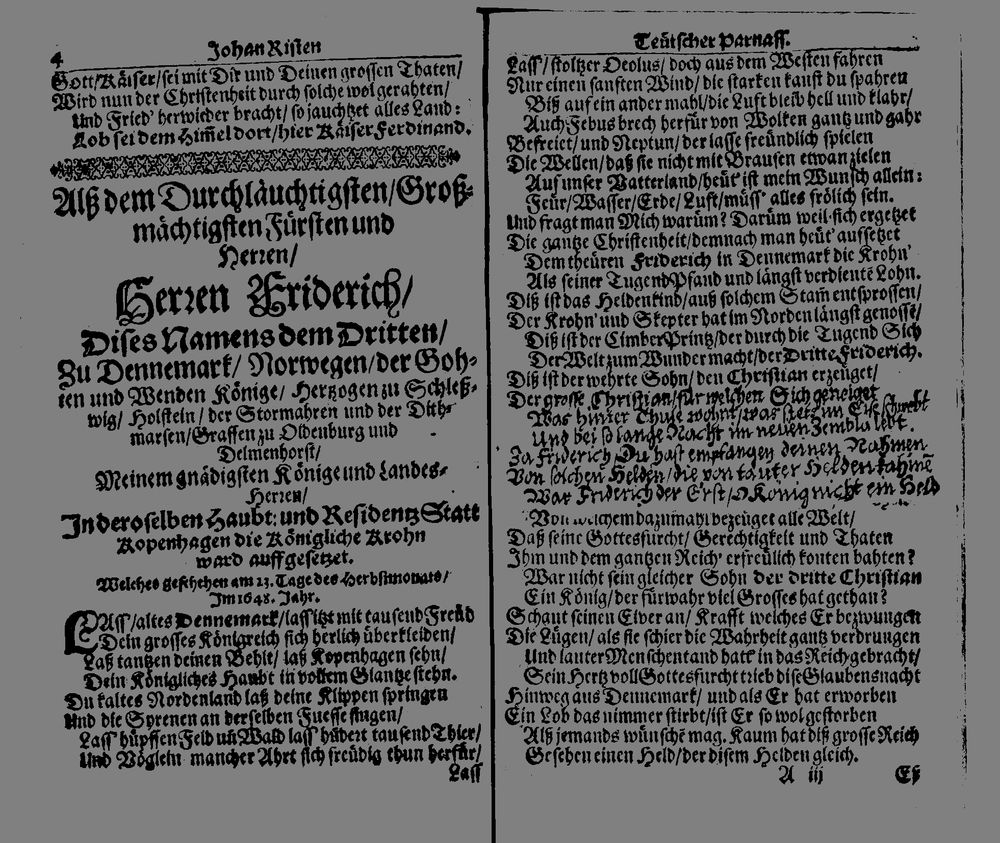 4
Johan Risten
Gott/Käiser/sei mit Dir und Deinen grossen Thaten/
Wird nun der Christenheit durch solche wol gerahten/
Und Fried' herwieder bracht/so jauchtzet alles Land:
Lob sei dem Him̃el dort/hier Käiser Ferdinand.
Alß dem Durchläuchtigsten/Groß-
mächtigsten Fürsten und
Herren/
Herren Friderich/
Dises Namens dem Dritten/
Zu Dennemark/ Norwegen/der Goh-
ten und Wenden Könige/ Hertzogen zu Schleß-
wig/ Holstein/ der Stormahren und der Dith-
marsen/Graffen zu Oldenburg und
Delmenhorst/
Meinem gnädigsten Könige und Landes-
Herren/
In deroselben Haubt: und Residentz Statt
Kopenhagen die Königliche Krohn
ward auffgesetzet.
Welches geschehen am 23. Tage des Herbstmonats/
Im 1648. Jahr.
LAss/altes Dennemark/lass itzt mit tausend Freüd
Dein grosses Königreich sich herlich überkleiden/
Laß tantzen deinen Behlt/ laß Kopenhagen sehn/
Dein Königliches Haubt in vollem Glantze stehn.
Du kaltes Nordenland laß deine Klippen springen
Und die Syrenen an derselben Fuesse singen/
Lass hüpffen Feld uñ Wald lass hüdert tausend Thier/
Und Vöglein mancher Ahrt sich freüdig thun herfür/
Lass
Teütscher Parnass.
Lass/ stoltzer Oeolus/ doch aus dem Westen fahren
Nur einen sanften Wind/ die starken kanst du spahren
Biß auf ein ander mahl/die Luft bleib hell und klahr/
Auch Febus brech herfür von Wolken gantz und gahr
Befreiet/und Neptun/ der lasse freündlich spielen
Die Wellen/daß sie nicht mit Brausen etwan zielen
Auf unser Vatterland/heüt' ist mein Wunsch allein:
Feür/Wasser/Erde/Luft/müss' alles frölich sein.
Und fragt man Mich warüm? Darüm weil sich ergetzet
Die gantze Christenheit/demnach man heüt' aufsetzet
Dem theüren Friderich in Dennemark die Krohn'
Als seiner Tugend Pfand und längst verdientē Lohn.
Diß ist das Heldenkind/auß solchem Stam̃ entsprossen/
Der Krohn' und Skepter hat im Norden längst genossē/
Diß ist der Cimber Printz/der durch die Tugend Sich
Der Welt zum Wunder macht/der Dritte Friderich.
Diß ist der wehrte Sohn/den Christian erzeüget/
Der grosse Christian/für welchen Sich geneiget
Was hinter Thule wohnt/was stets im Eise schwebt
Und bei so lange Nacht im neuen Zembla lebt.
Ja Friderich/Du hast empfangen deinen Nahmen
Von solchen Helden/die von lauter Helden kahmē
War Friderich der Erst/o König nicht ein Held
Von welchem dazumahl bezeüget alle Welt/
Daß seine Gottesfürcht/ Gerechtigkeit und Thaten
Ihm und dem gantzen Reich' erfreülich konten bahten?
War nicht sein gleicher Sohn der dritte Christian
Ein König/der fürwahr viel Grosses hat gethan?
Schaut seinen Eiver an/ Krafft welches Er bezwungen
Die Lügen/als sie schier die Wahrheit gantz verdrungen
Und lauter Menschentand hatt' in das Reich gebracht/
Sein Hertz voll Gottesfurcht trieb dise Glaubensnacht
Hinweg aus Dennemark/ und als Er hat erworben
Ein Lob das nimmer stirbt/ist Er so wol gestorben
Alß jemands wünschē mag. Kaum hat diß grosse Reich
Gesehen einen Held/der disem Helden gleich.
A iij
Eß